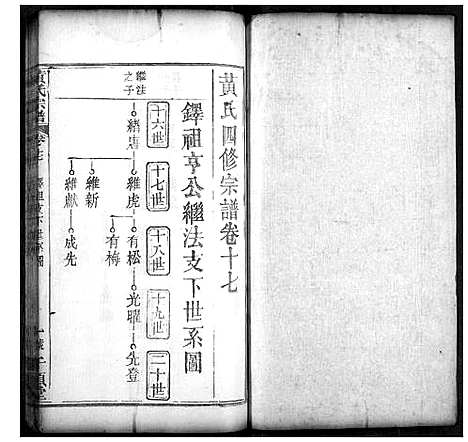 黄氏四修宗譜卷十七
鐸祖亨公繼法支下世系圖
十六世
十七世
十八世
十九世
二十世
繼法
之子
緒唐
維虎
有松
光曜
先登
有梅
維新
維獻
成先
黄氏宗譜
卷十七